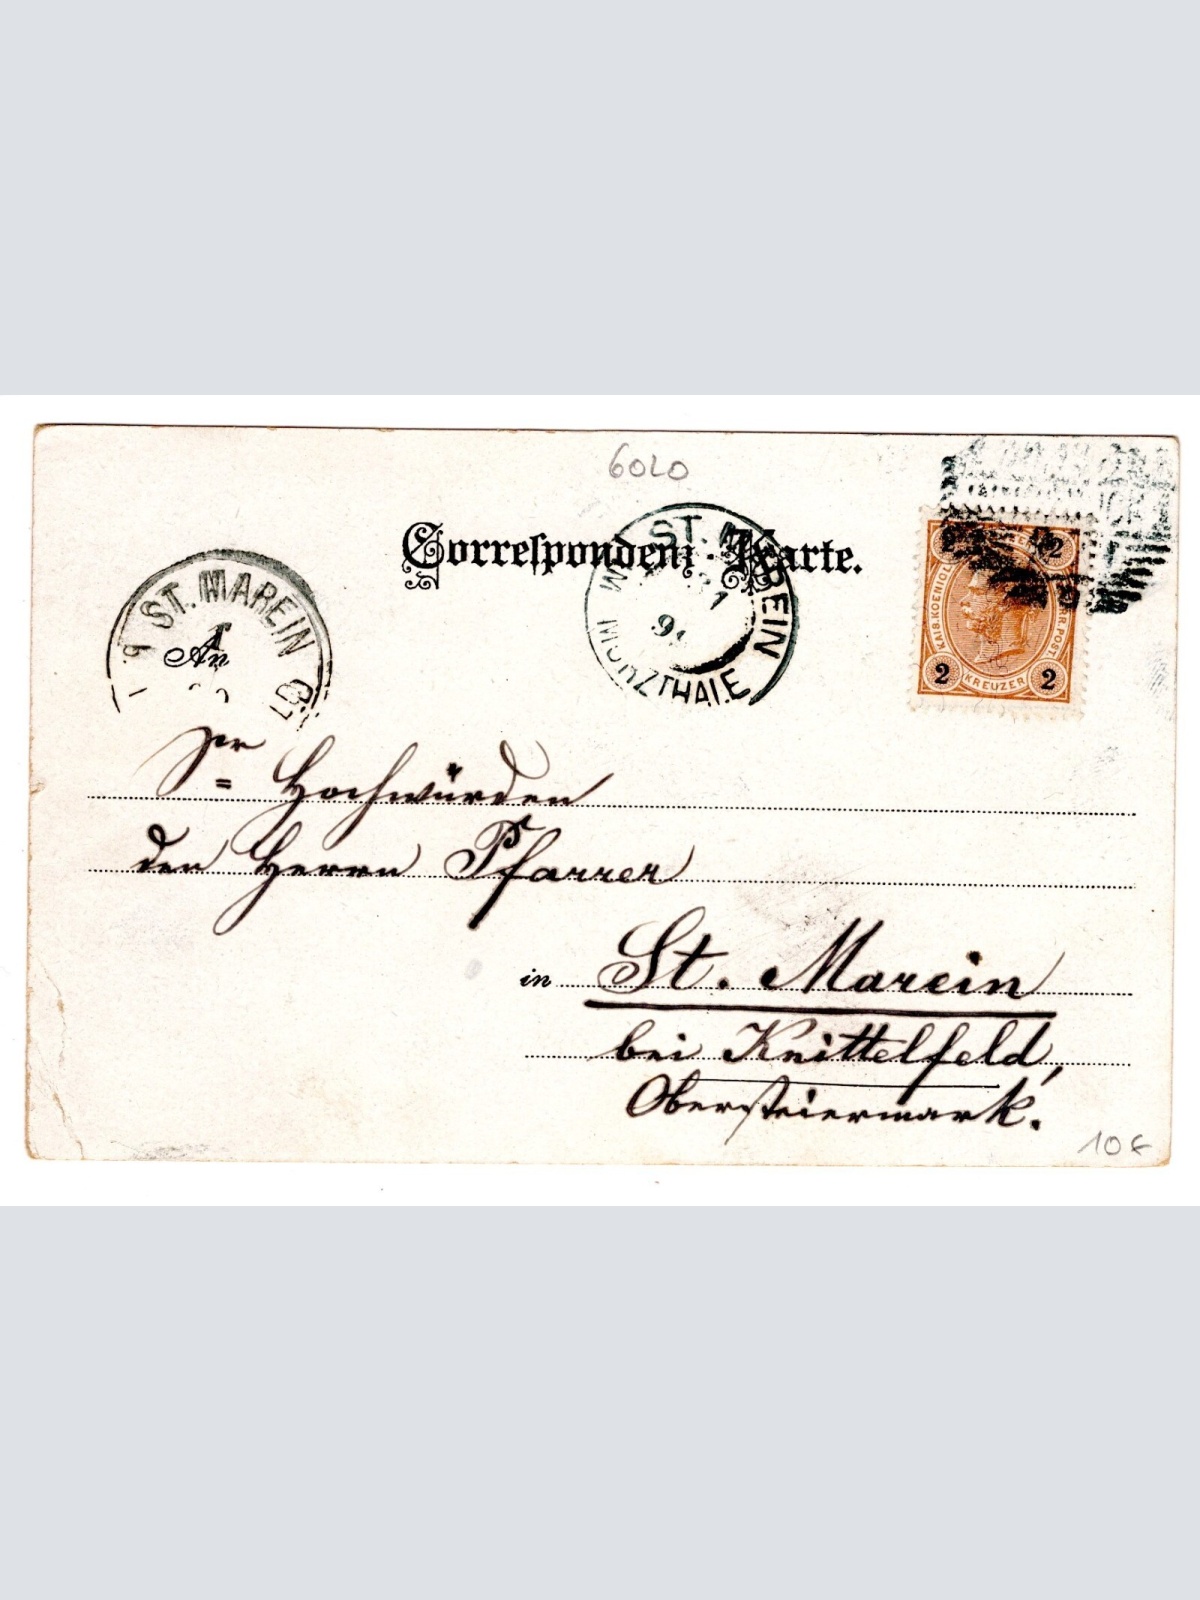 6020
Correspondenz-Karte.
ST. MAREIN
MÜRZTHALE
91
ST. MAREIN
An
KAIS. KOENIGL. OESTERR. POST
2 2
2 KREUZER 2
Sr Hochwürden
den Herrn Pfarrer
in St. Marein
bei Knittelfeld,
Obersteiermark.
10 €